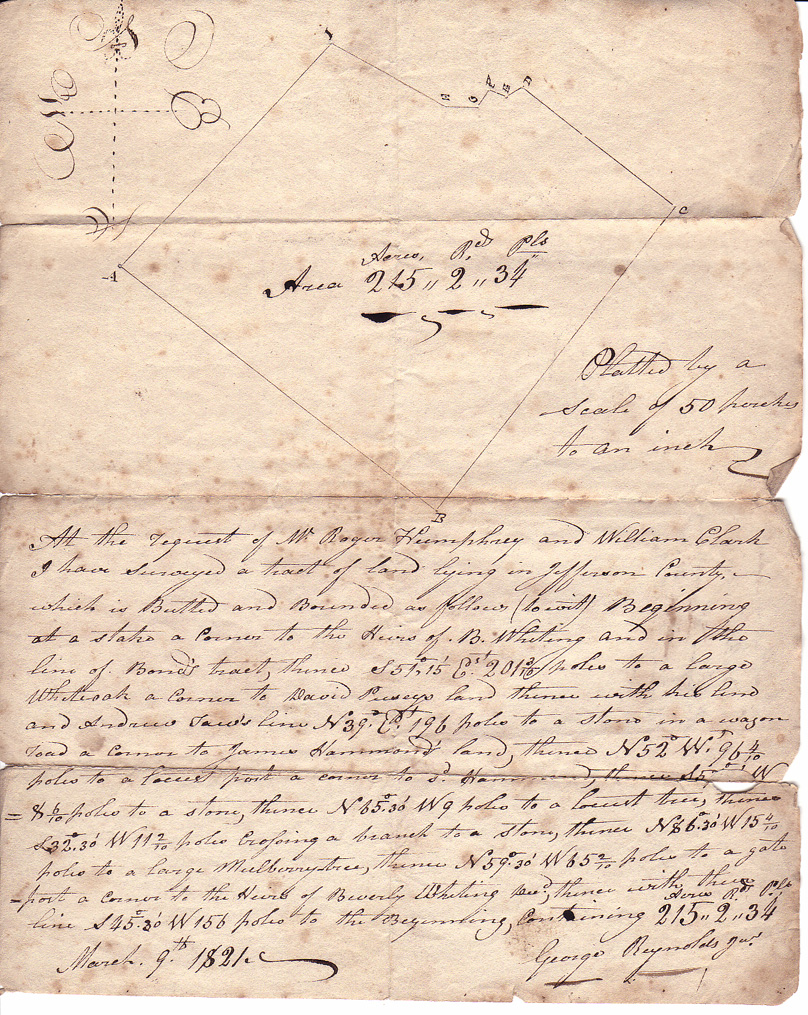 I
H
G
F
E
D
C
A
Acres, R.ds Pls
Area 215 ,, 2 ,, 34
Platted by a
scale of 50 perches
to an inch
B
At the request of Mr. Roger Humphrey and William Clark
I have surveyed a tract of land lying in Jefferson County,
which is Butted and Bounded as follow (towit) Beginning
at a stake a Corner to the Heirs of B. Whiting and in the
line of Bond's tract, thence S51°.15' E.t 201 poles to a large
Whiteoak a Corner to David Puseys land thence with his line
and Andrew line N39° E.t 196 poles to a stone in a wagon
road a corner to James Hammond's land, thence N52° W.t 96 4/10
poles to a locust post a corner to sd. Hammond, thence W
= 8 6/10 poles to a stone, thence N65°.30' W 9 poles to a locust tree, thence
S32°.30' W 11 2/10 poles Crossing a branch to a stone, thence N86°.30' W 15 4/10
poles to a large Mulberrytree, thence N59°.30' W 65 2/10 poles to a gate
=post a corner to the Heirs of Beverly Whiting dec.d, thence with their
line S45°.30' W 156 poles to the Beginning, Containing 215 ,, 2 ,, 34
Acres R.ds Pls
March. 9.th 1821.
George Reynolds Jur.